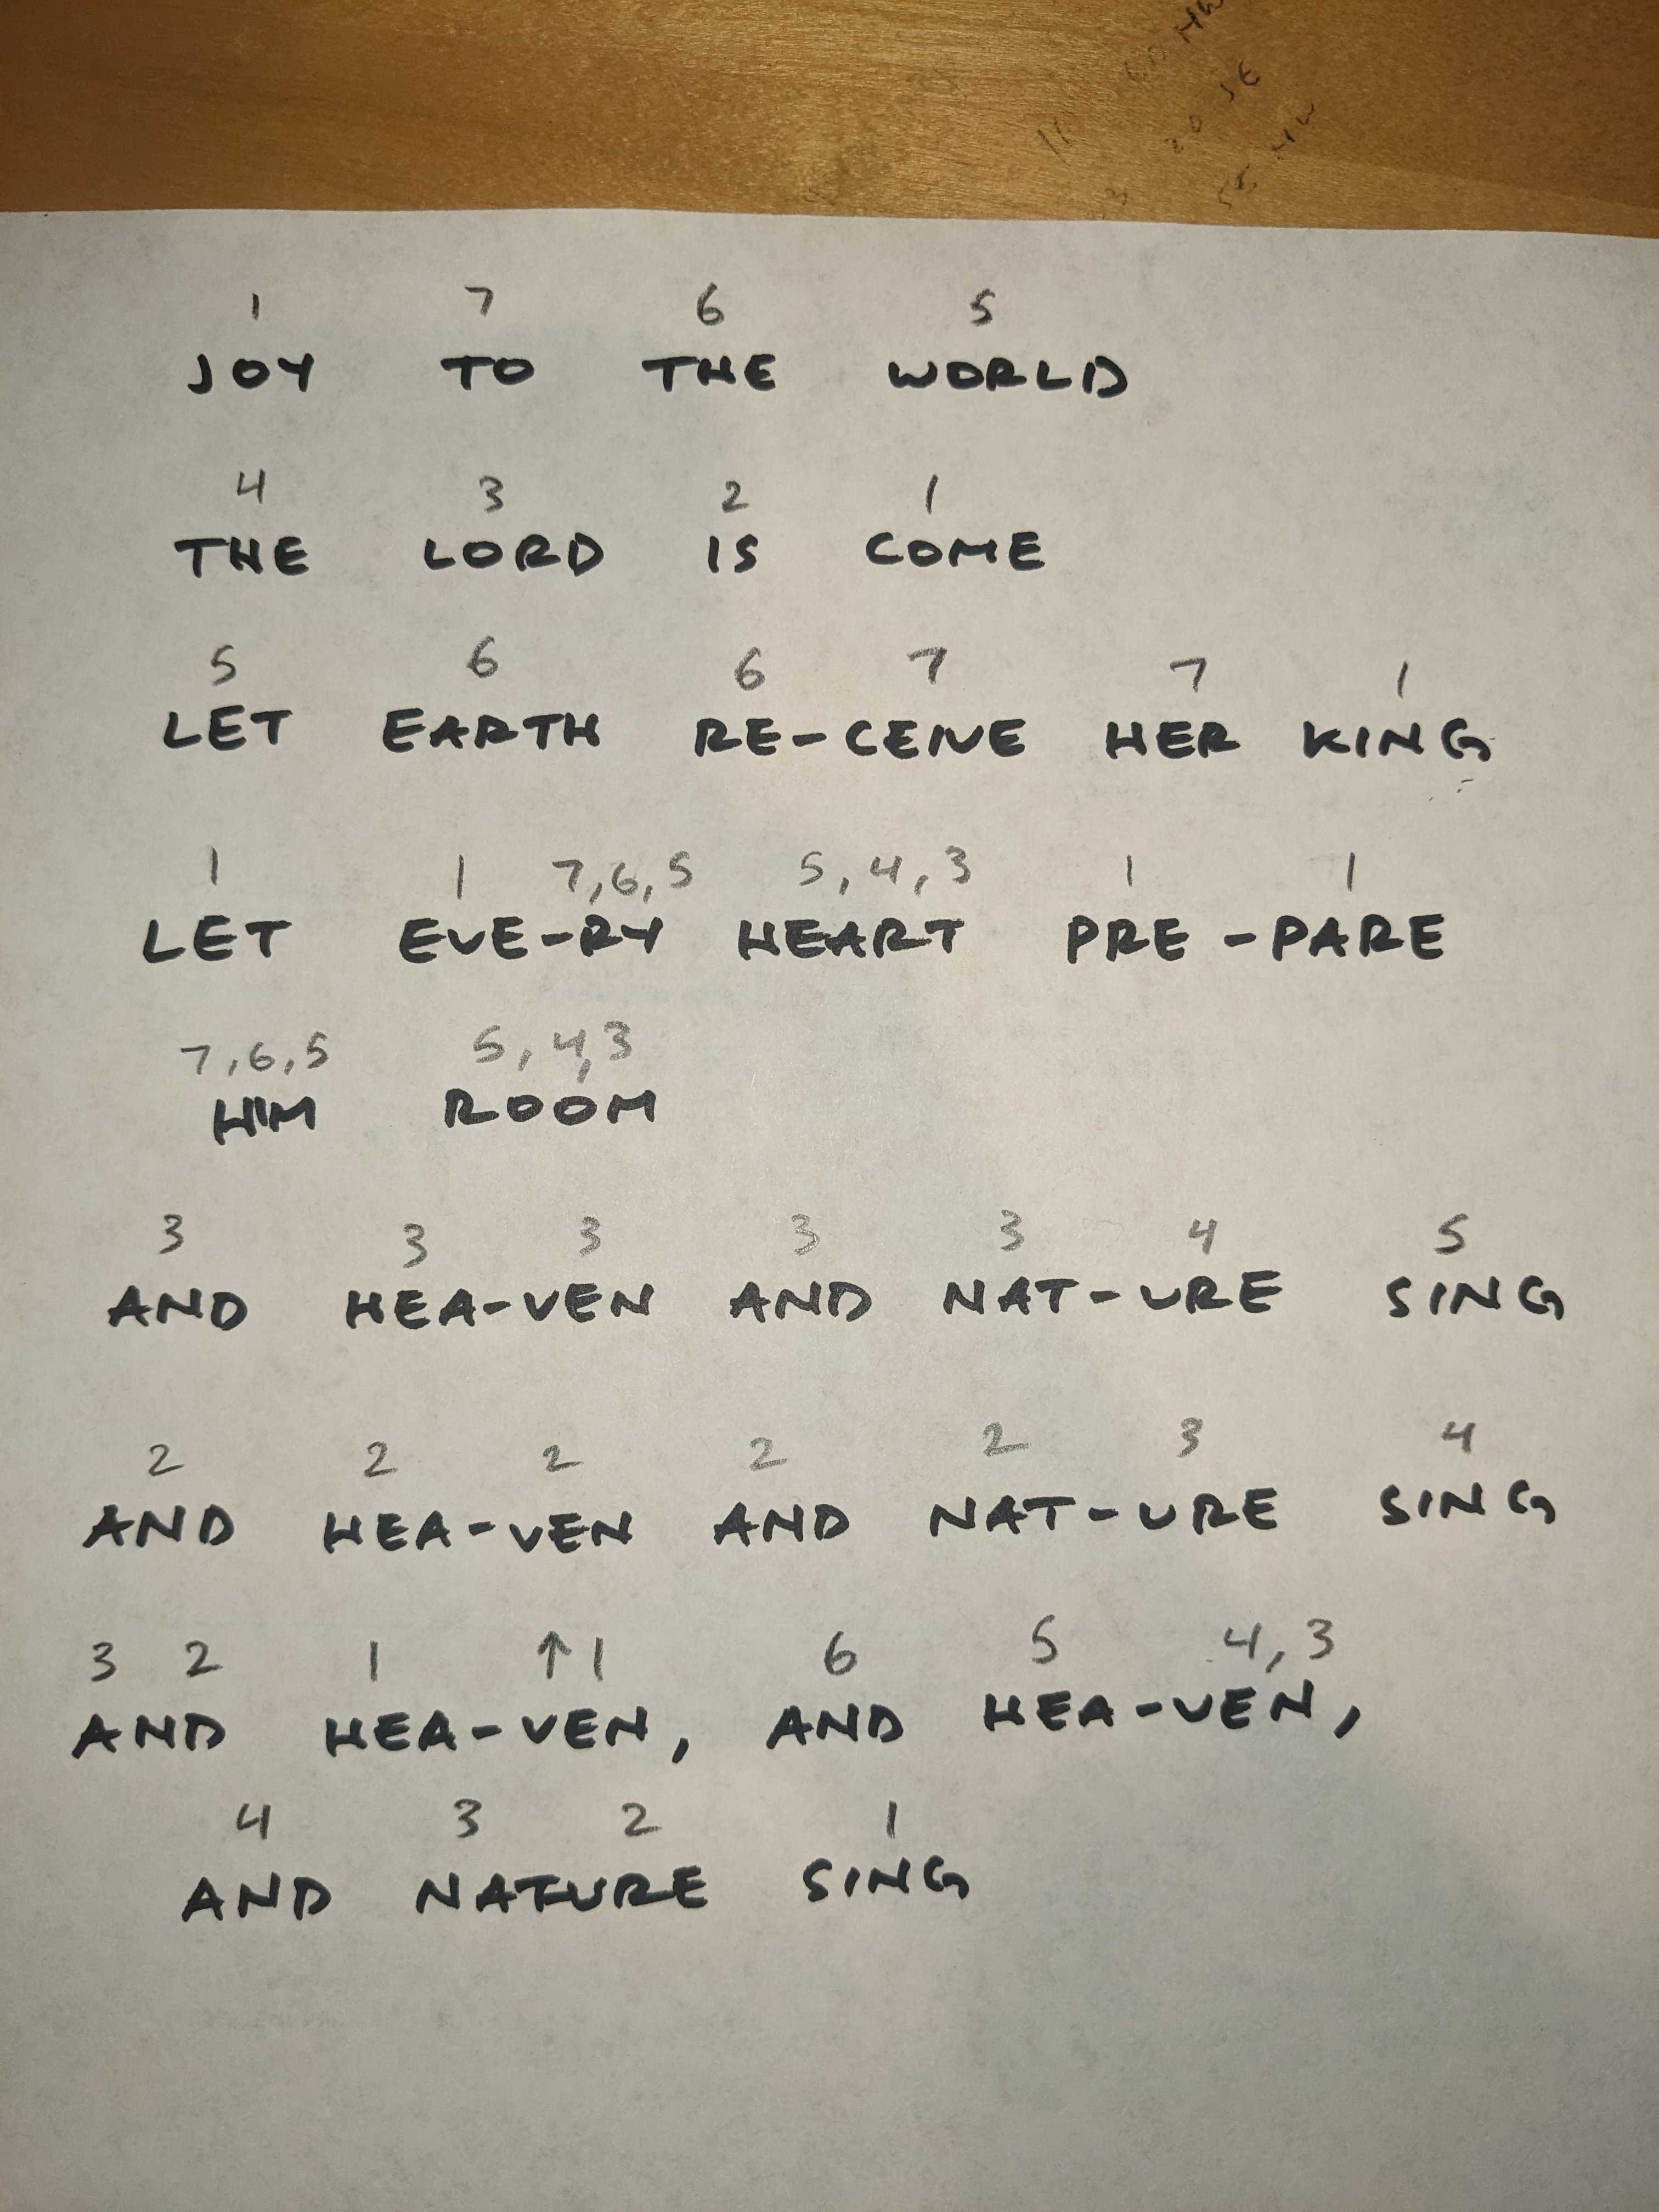 1 7 6 5
JOY TO THE WORLD
4 3 2 1
THE LORD IS COME
5 6 6 7 7 1
LET EARTH RE-CEIVE HER KING
1 1 7,6,5 5,4,3 1 1
LET EVE-RY HEART PRE-PARE
7,6,5 5,4,3
HIM ROOM
3 3 3 3 3 4 5
AND HEA-VEN AND NAT-URE SING
2 2 2 2 2 3 4
AND HEA-VEN AND NAT-URE SING
3 2 1 ↑1 6 5 4,3
AND HEA-VEN, AND HEA-VEN,
4 3 2 1
AND NATURE SING